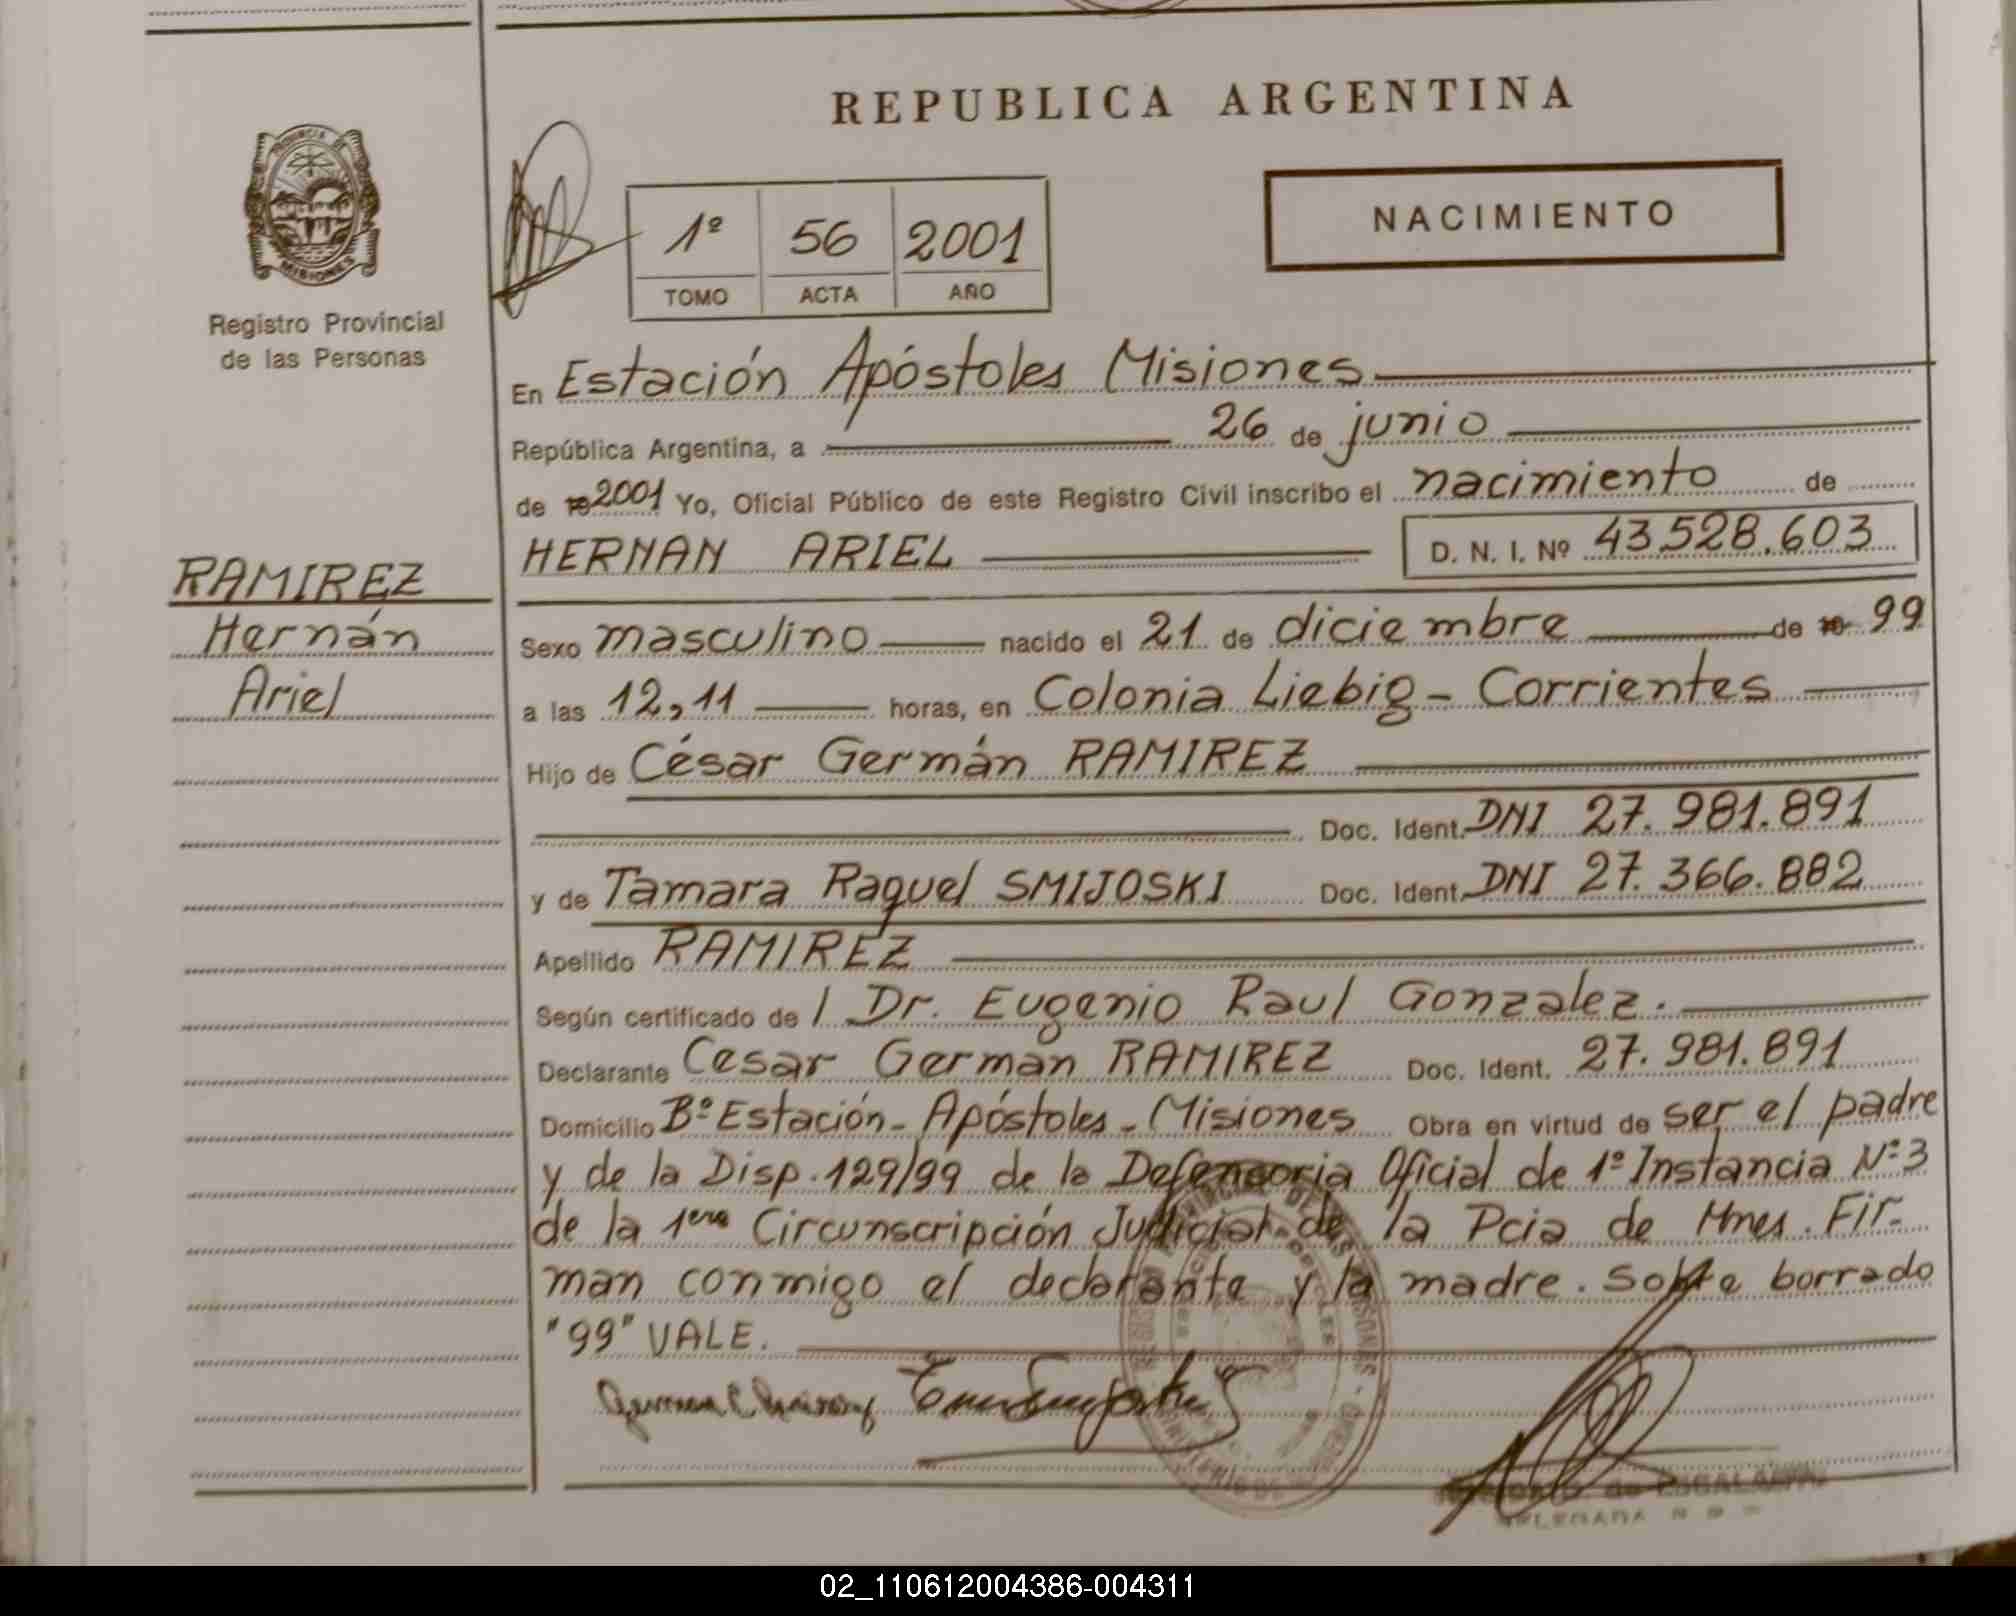 REPUBLICA ARGENTINA
PROVINCIA DE
MISIONES
Registro Provincial
de las Personas
1º 56 2001
TOMO ACTA AÑO
NACIMIENTO
En Estación Apóstoles Misiones
República Argentina, a 26 de junio
de 19 2001 Yo, Oficial Público de este Registro Civil inscribo el nacimiento de
HERNAN ARIEL D. N. I. Nº 43.528.603
RAMIREZ
Hernán
Ariel
Sexo masculino nacido el 21 de diciembre de 19 99
a las 12,11 horas, en Colonia Liebig - Corrientes
Hijo de César Germán RAMIREZ
Doc. Ident. DNI 27.981.891
y de Tamara Raquel SMIJOSKI Doc. Ident. DNI 27.366.882
Apellido RAMIREZ
Según certificado de l Dr. Eugenio Raul Gonzalez.
Declarante Cesar German RAMIREZ Doc. Ident. 27.981.891
Domicilio Bº Estación - Apóstoles - Misiones Obra en virtud de ser el padre
y de la Disp. 129/99 de la Defensoria Oficial de 1º Instancia Nº 3
de la 1era Circunscripción Judicial de la Pcia de Mnes. Fir-
man conmigo el declarante y la madre. Sobre borrado
"99" VALE.
de ESCALANTE
DELEGADA
02_110612004386-004311